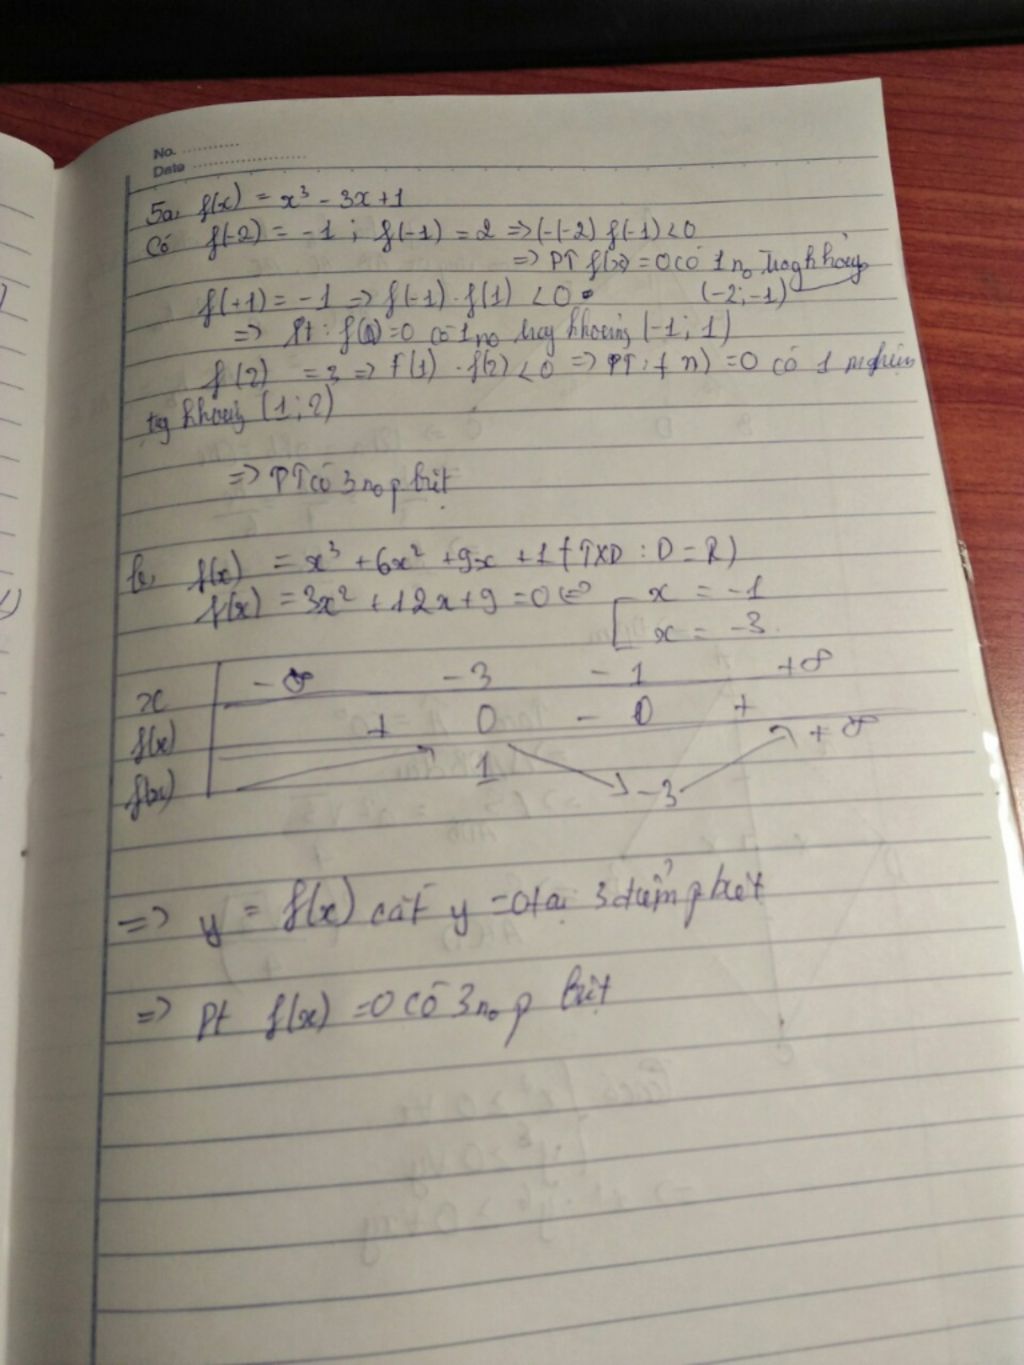 No. ..........
Date ....................
5a, f(x) = x³ - 3x + 1
Có f(-2) = -1 ; f(-1) = 2 => (-(-2) f(-1) < 0
=> PT f(x) = 0 có 1 no trog khoảng
f(+1) = -1 => f(-1) . f(1) < 0 (-2; -1)
=> Pt : f(x) = 0 có 1 no trog khoảng (-1; 1)
f(2) = 3 => f(1) . f(2) < 0 => PT : f x) = 0 có 1 nghiệm
tng khoảng (1; 2)
=> PT có 3 no p biệt
b, f(x) = x³ + 6x² + 9x + 1 (TXD : D = R)
f(x) = 3x² + 12x + 9 = 0 <=> [ x = -1
x = -3
x -∞ -3 -1 +∞
f(x) + 0 - 0 +
f(x) 1 -3 +∞
=> y = f(x) cắt y = 0 tại 3 điểm p biệt
=> Pt f(x) = 0 có 3 no p biệt